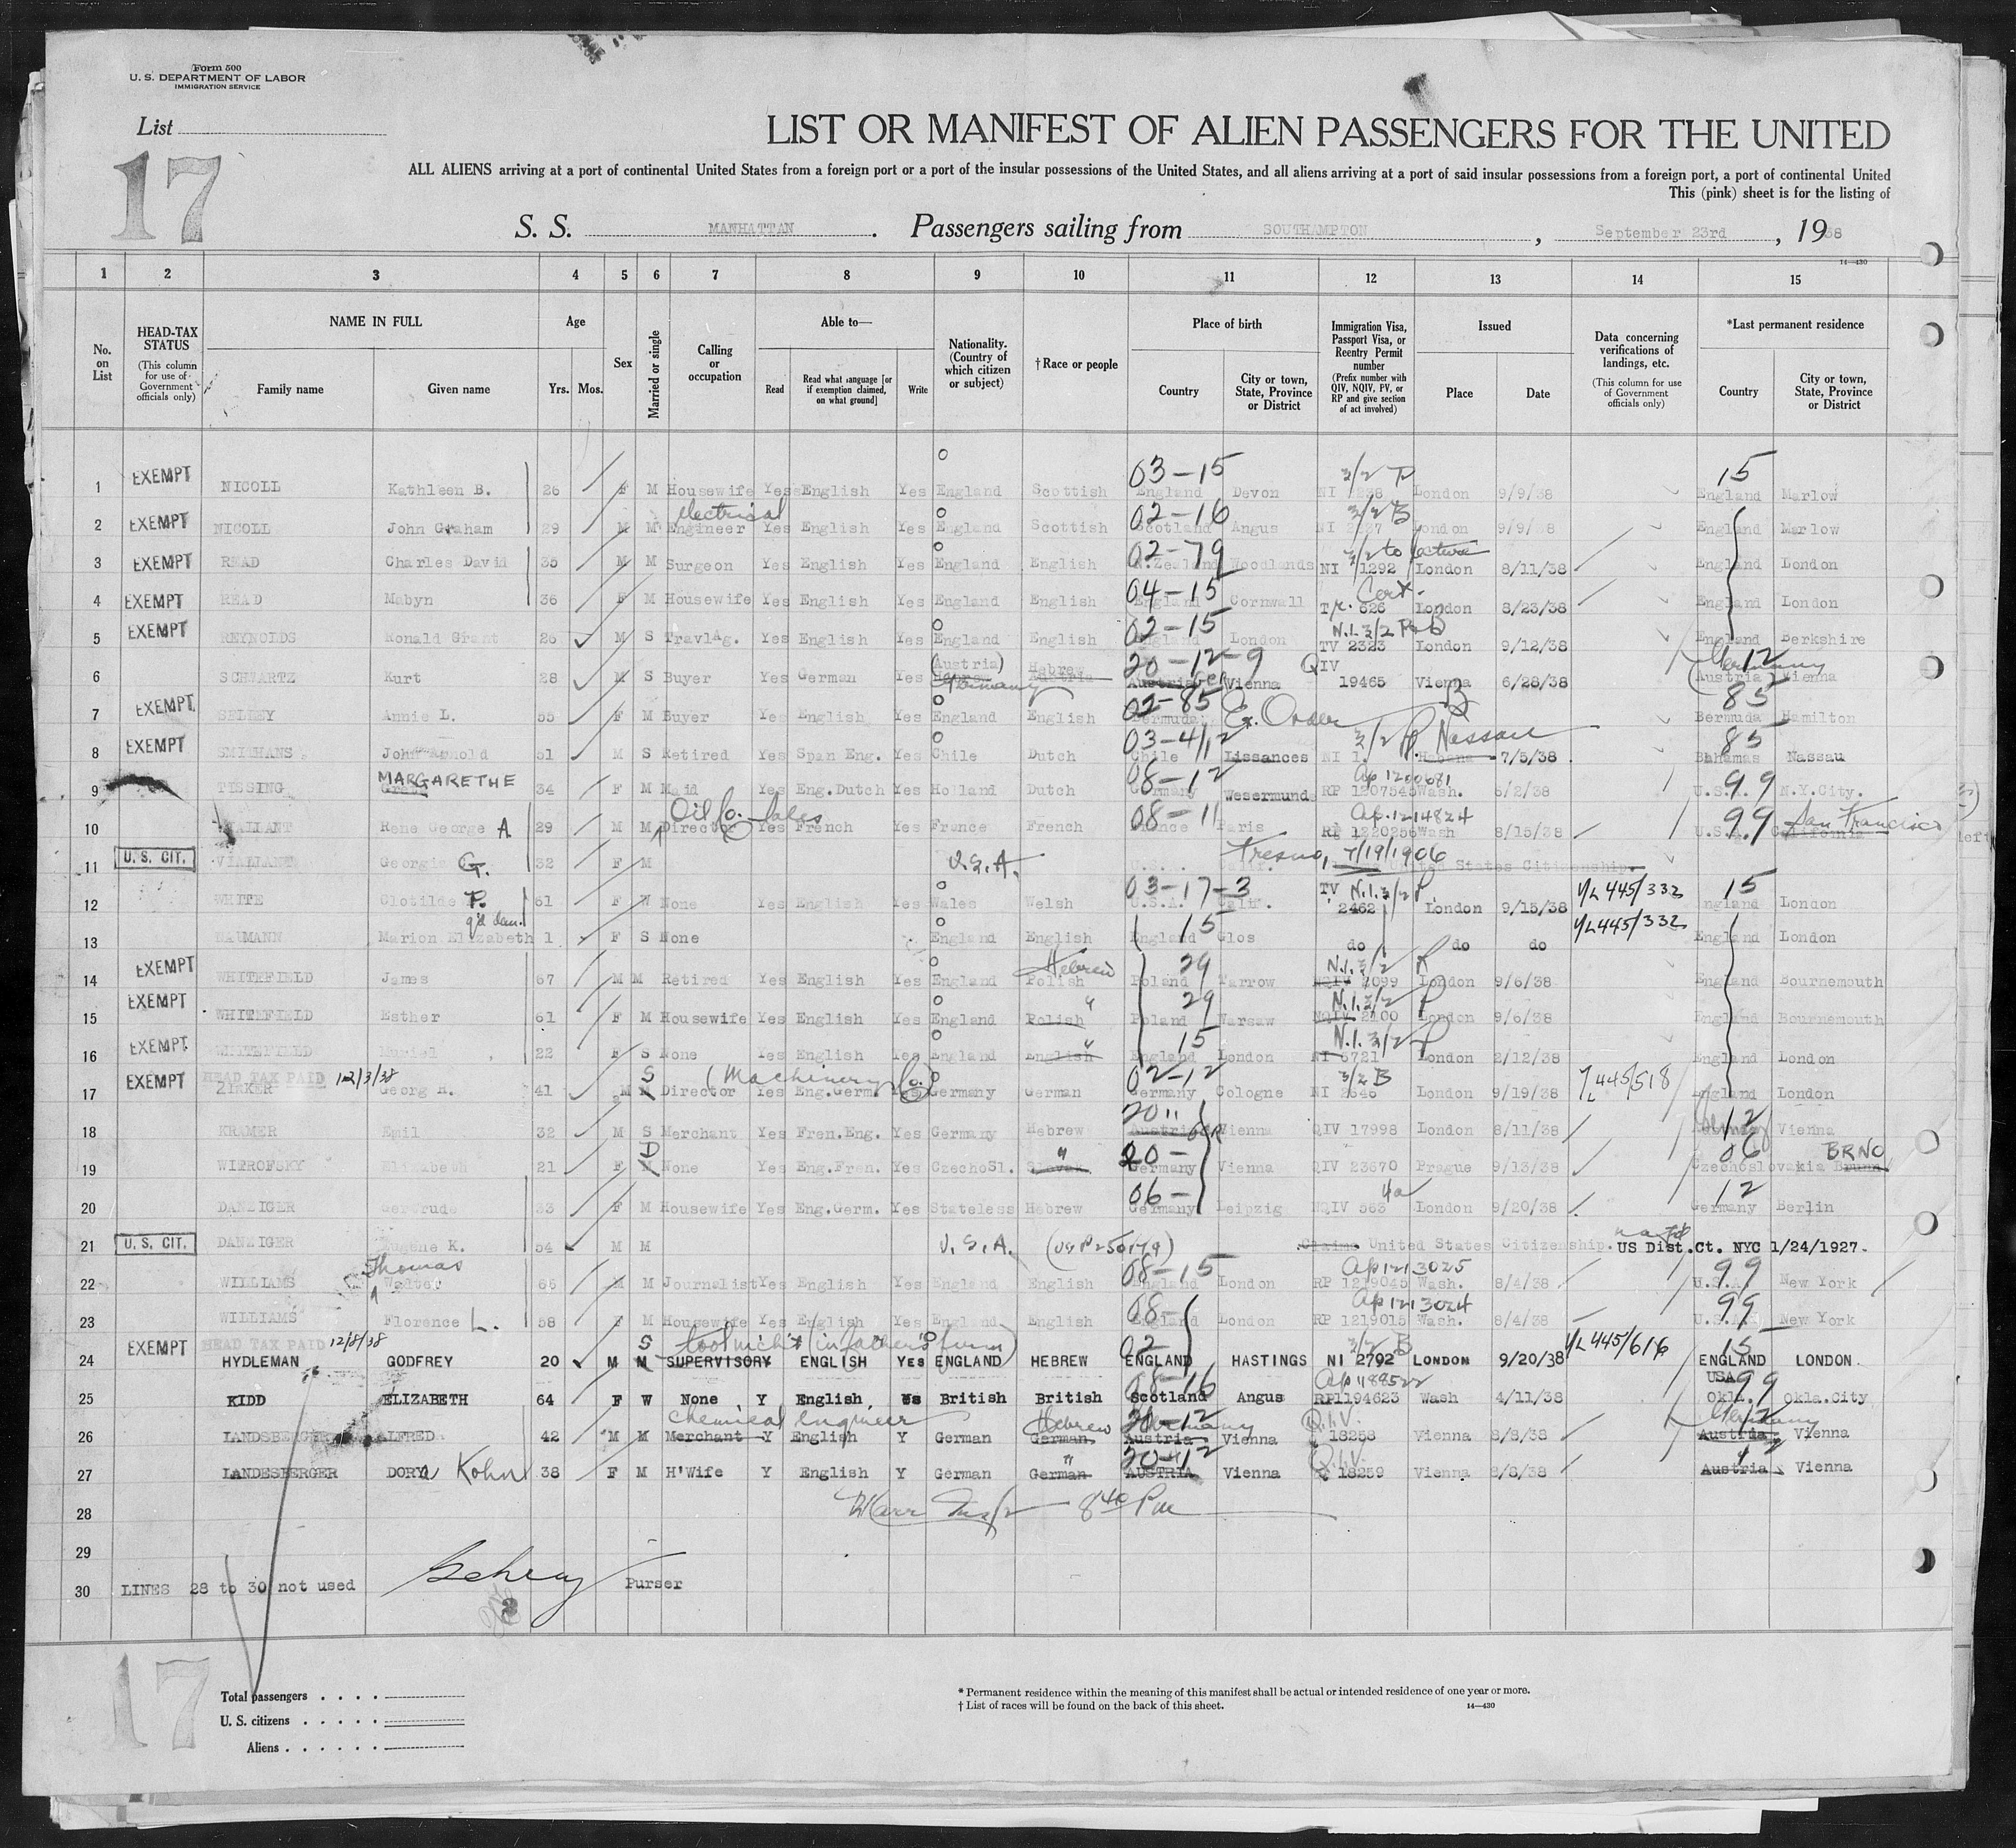 Form 500
U. S. DEPARTMENT OF LABOR
IMMIGRATION SERVICE
List
17
LIST OR MANIFEST OF ALIEN PASSENGERS FOR THE UNITED
ALL ALIENS arriving at a port of continental United States from a foreign port or a port of the insular possessions of the United States, and all aliens arriving at a port of said insular possessions from a foreign port, a port of continental United
This (pink) sheet is for the listing of
S. S. MANHATTAN . Passengers sailing from SOUTHAMPTON , September 23rd , 1938
14—430
1 2 3 4 5 6 7 8 9 10 11 12 13 14 15
No. on List
HEAD-TAX STATUS (This column for use of Government officials only)
NAME IN FULL Family name Given name
Age Yrs. Mos.
Sex
Married or single
Calling or occupation
Able to— Read Read what language [or if exemption claimed, on what ground] Write
Nationality. (Country of which citizen or subject)
† Race or people
Place of birth Country City or town, State, Province or District
Immigration Visa, Passport Visa, or Reentry Permit number (Prefix number with QIV, NQIV, PV, or RP and give section of act involved)
Issued Place Date
Data concerning verifications of landings, etc. (This column for use of Government officials only)
*Last permanent residence Country City or town, State, Province or District
03-15 3/2 P 15
1 EXEMPT NICOLL Kathleen B. 26 F M Housewife Yes English Yes England Scottish England Devon NI London 9/9/38 England Marlow
electrical 02-16 3/2 B
2 EXEMPT NICOLL John Graham 29 M M Engineer Yes English Yes England Scottish Scotland Angus NI London 9/9/38 England Marlow
02-79 3/2 to lecture
3 EXEMPT READ Charles David 35 M M Surgeon Yes English Yes England English N.Zealand Woodlands NI 1292 London 8/11/38 England London
04-15 Cert.
4 EXEMPT READ Mabyn 36 F M Housewife Yes English Yes England English England Cornwall 626 London 8/23/38 England London
02-15 N.I. 3/2
5 EXEMPT REYNOLDS Ronald Grant 26 M S Trav1Ag. Yes English Yes England English England London TV 2323 London 9/12/38 England Berkshire
(Austria) Hebrew 20-12-9 QIV Germany 12
6 SCHWARTZ Kurt 28 M S Buyer Yes German Yes Germany Austria Ger Vienna 19465 Vienna 6/28/38 (Austria) Vienna
02-85 B 85
7 EXEMPT SELLEY Annie L. 55 F M Buyer Yes English Yes England English Bermuda Ex. Order Bermuda Hamilton
03-41 12 3/2 P. Nassau 85
8 EXEMPT SMITHANS John Arnold 51 M S Retired Yes Span Eng. Yes Chile Dutch Chile Lissances NI 1. Habana 7/5/38 Bahamas Nassau
MARGARETHE 08-12 Ap 1200681 99
9 TESSING Grete 34 F M Maid Yes Eng.Dutch Yes Holland Dutch Germany Wesermunde RP 1207545 Wash. 5/2/38 U.S.A. N.Y.City.
Oil Co. Sales 08-11 Ap. 1214824 99 San Francisco
10 Rene George A 29 M M Director Yes French Yes France French France Paris RP 1220256 Wash 8/15/38 U.S.A. California
11 U. S. CIT. Georgia G. 32 F M U.S.A. Fresno, 7/19/1906 United States Citizenship.
03-17-3 TV N.I. 3/2 P V/L 445/332 15
12 WHITE Clotilde P. 61 F W None Yes English Yes Wales Welsh U.S.A. Calif. 2462 London 9/15/38 England London
g'd dau. 15 V/L 445/332
13 Marion Elizabeth 1 F S None England English England Glos do do do England London
Hebrew 29 N.I. 3/2 P
14 EXEMPT WHITEFIELD James 67 M M Retired Yes English Yes England Polish Poland Tarrow NQIV 2099 London 9/6/38 England Bournemouth
" 29 N.I. 3/2 P
15 EXEMPT WHITEFIELD Esther 61 F M Housewife Yes English Yes England Polish Poland Warsaw NQIV 2100 London 9/6/38 England Bournemouth
" 15 N.I. 3/2 P
16 EXEMPT WHITEFIELD Muriel 22 F S None Yes English Yes England English England London NI 6721 London 2/12/38 England London
HEAD TAX PAID 12/3/38 S (Machinery Co.) 02-12 3/2 B 445/518
17 EXEMPT ZIRKER Georg H. 41 M M Director Yes Eng.Germ. Yes Germany German Germany Cologne NI 2646 London 9/19/38 England London
20 11 12
18 KRAMER Emil 32 M S Merchant Yes Fren.Eng. Yes Germany Hebrew Austria GER Vienna QIV 17998 London 8/11/38 Germany Vienna
D " 20- 06 BRNO
19 WIEROFSKY Elizabeth 21 F M None Yes Eng.Fren. Yes CzechoSl. Slovak Germany Vienna QIV 23670 Prague 9/13/38 Czechoslovakia Brunn
06- 4a 12
20 DANZIGER Gertrude 33 F M Housewife Yes Eng.Germ. Yes Stateless Hebrew Germany Leipzig NQIV 563 London 9/20/38 Germany Berlin
21 U. S. CIT. DANZIGER Eugene K. 54 M M U.S.A. Claims United States Citizenship. US Dist.Ct. NYC 1/24/1927.
Thomas 08-15 Ap 1213025 99
22 WILLIAMS Walter 66 M M Journalist Yes English Yes England English England London RP 1219045 Wash. 8/4/38 U.S.A. New York
08- Ap 1213024 99
23 WILLIAMS Florence L. 58 F M Housewife Yes English Yes England English England London RP 1219015 Wash. 8/4/38 U.S.A. New York
HEAD TAX PAID 12/8/38 S (in father's firm) 02- 3/2 B V/L 445/616 15
24 EXEMPT HYDLEMAN GODFREY 20 M M SUPERVISORY ENGLISH Yes ENGLAND HEBREW ENGLAND HASTINGS NI 2702 LONDON 9/20/38 ENGLAND LONDON
08-16 USA 99
25 KIDD ELIZABETH 64 F W None Y English Yes British British Scotland Angus RP1194623 Wash 4/11/38 Okla. Okla.City
Chemical engineer Hebrew 20-12 Germany Q.I.V. Germany 12
26 LANDSBERGER ALFRED 42 M M Merchant Y English Y German German Austria Vienna 18258 Vienna 8/8/38 Austria Vienna
" 20-12 Q.I.V.
27 LANDESBERGER DORA Kohn 38 F M H'Wife Y English Y German German AUSTRIA Vienna 18259 Vienna 8/8/38 Austria Vienna
28 8 40 Pm
29
30 LINES 28 to 30 not used Purser
17
Total passengers . . . .
U. S. citizens . . . . .
Aliens . . . . . .
* Permanent residence within the meaning of this manifest shall be actual or intended residence of one year or more.
† List of races will be found on the back of this sheet.
14—430